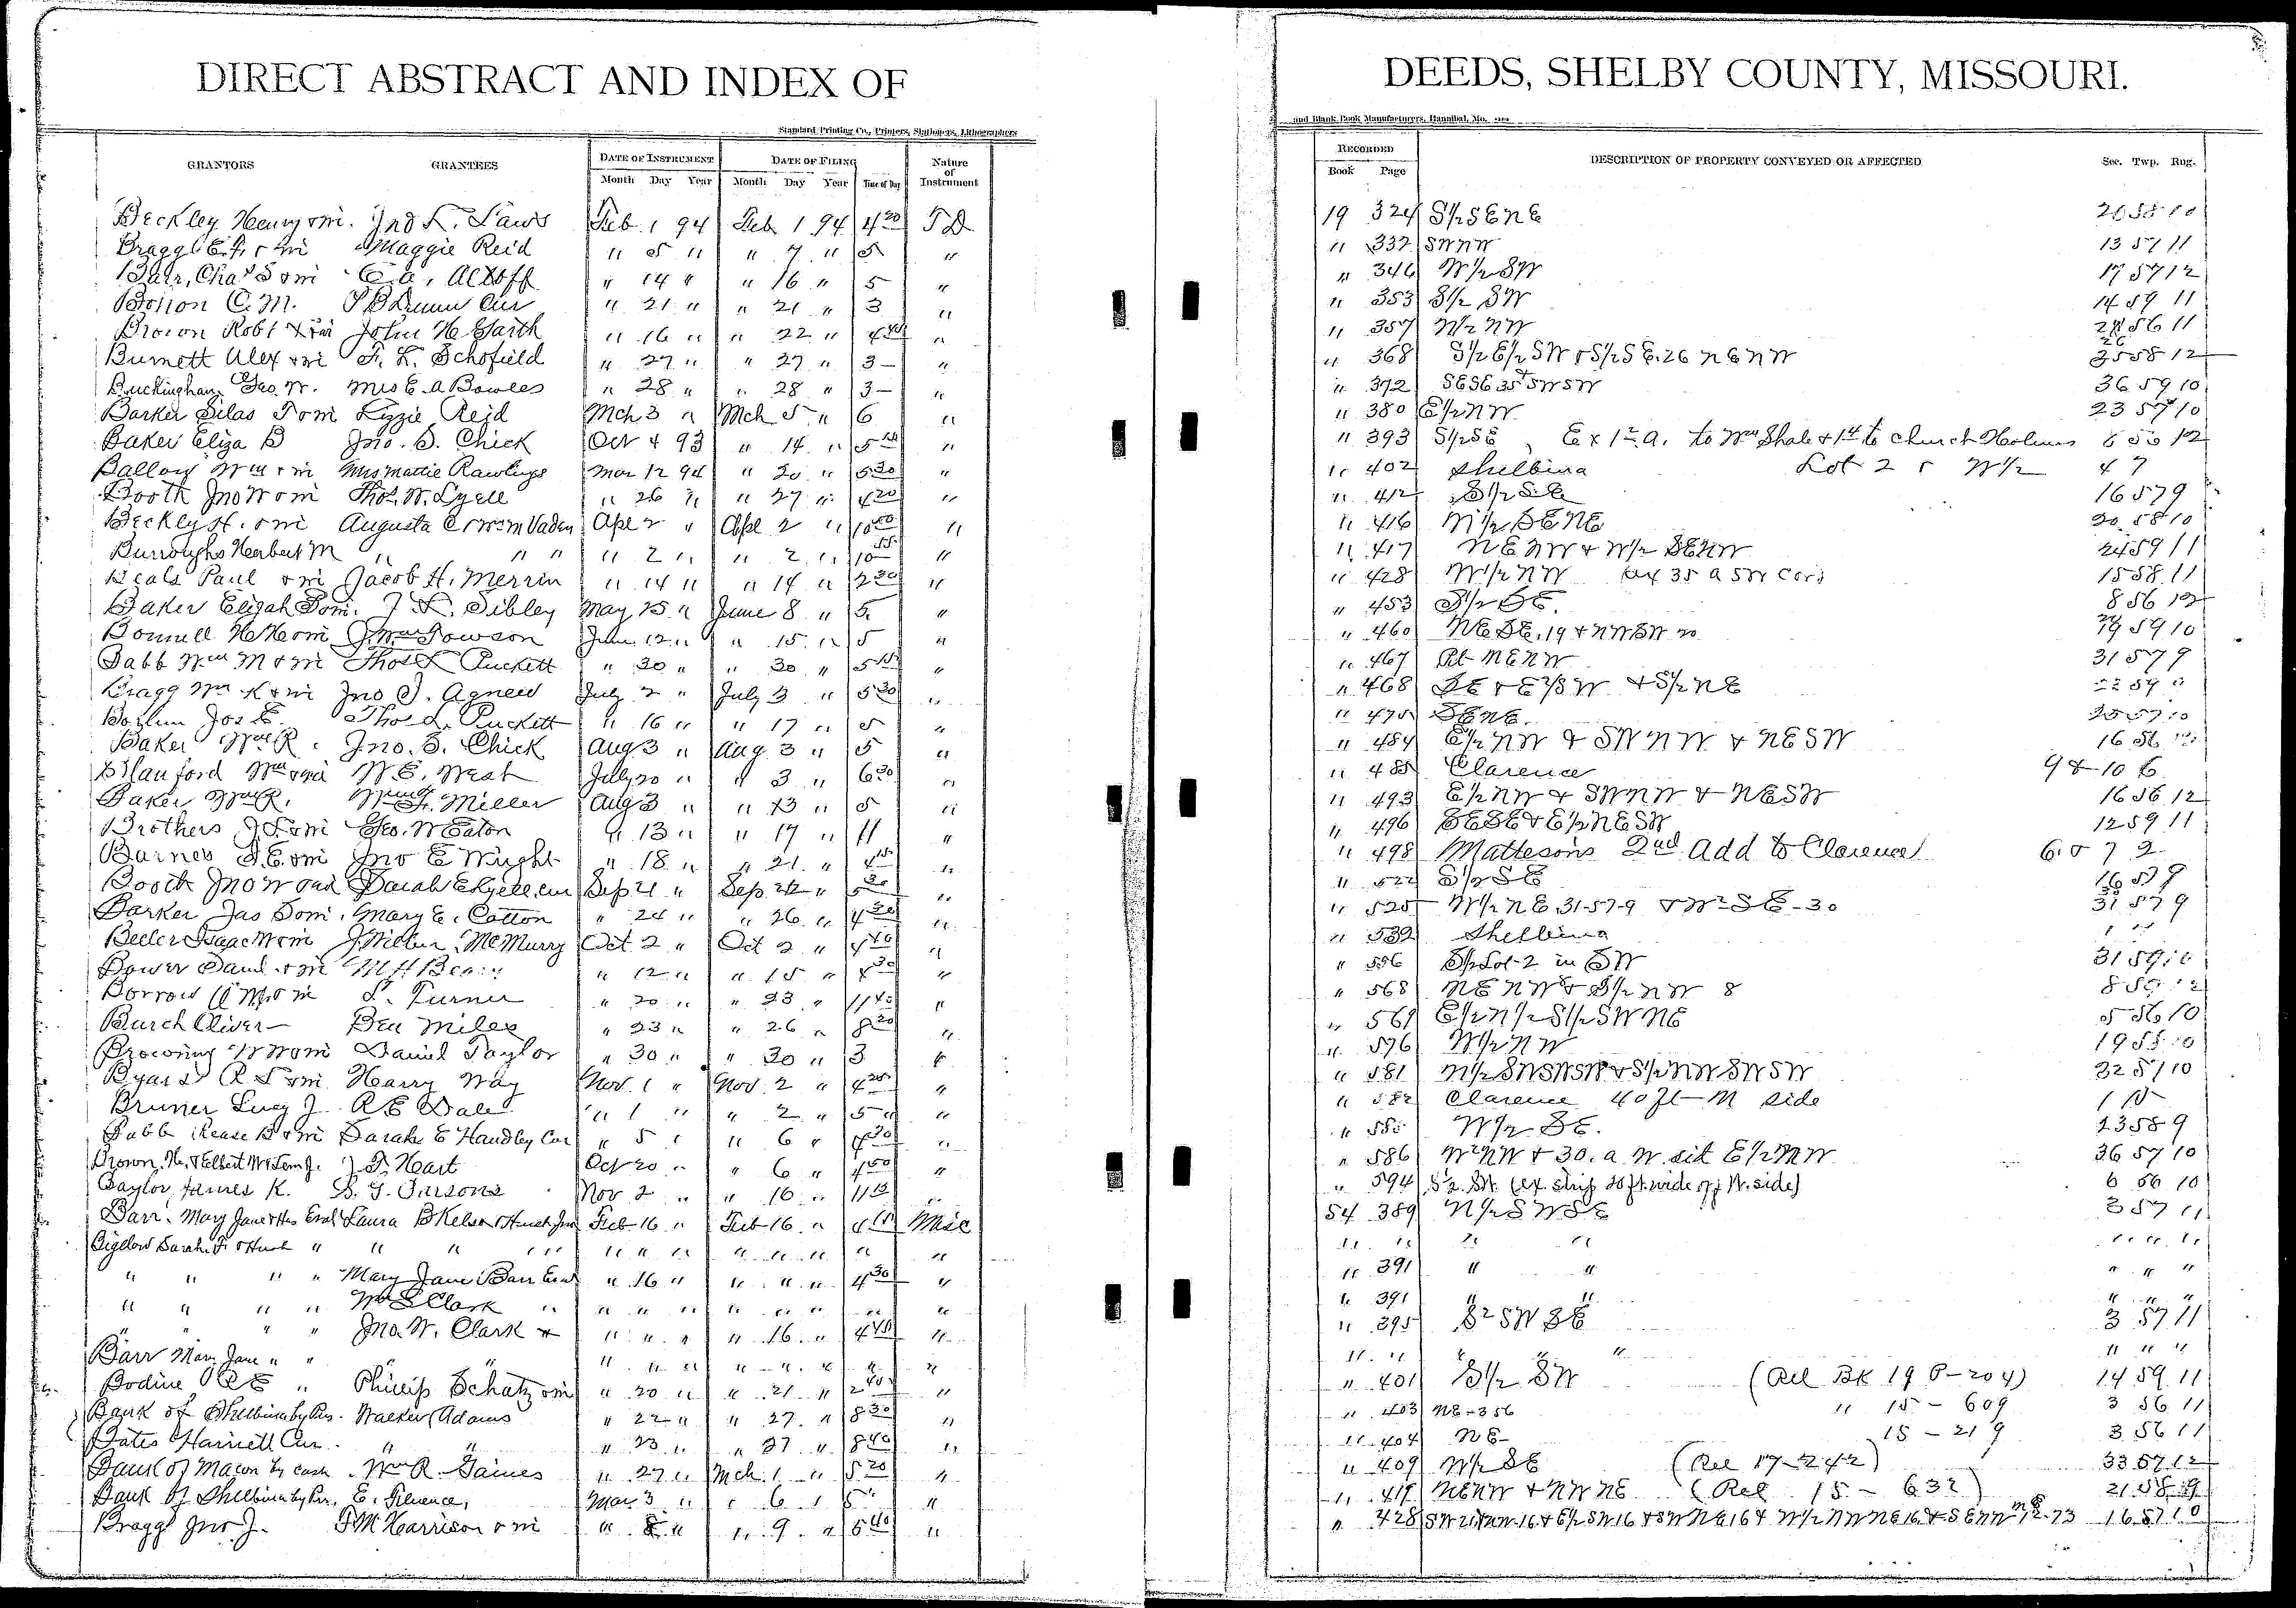 DIRECT ABSTRACT AND INDEX OF
Standard Printing Co., Printers, Stationers, Lithographers
GRANTORS GRANTEES DATE OF INSTRUMENT DATE OF FILING Nature of Instrument
Month Day Year Month Day Year Time of Day
Beckley Henry & wi. Jno L. Laws Feb. 1 94 Feb 1 94 4 20 T D
Bragg E. F. & wi Maggie Reid " 5 " " 7 " 5 "
Barr, Chas S & wi E. A. " 14 " " 16 " 5 "
C. M. Cur " 21 " " 21 " 3 "
Brown Robt & wi John H. Garth " 16 " " 22 " 4 40 "
Burnett Alex & wi F. L. Schofield " 27 " " 27 " 3 - "
Buckingham, Geo. W. Mrs E. A Bowles " 28 " " 28 " 3 - "
Barker Silas T & wi Lizzie Reid Mch 3 " Mch 5 " 6 "
Baker Eliza B Jno. S. Chick Oct 4 93 " 14 " 5 "
Ballow Wm & wi Mrs Mattie Rawlings Mar 12 94 " 20 " 5 30 "
Booth Jno W & wi Thos. W. Lyell " 26 " " 27 " 4 20 "
Beckley H. & wi Augusta C & Wm Vaden Apl 2 " Apl 2 " 10 50 "
Burroughs Herbert M " " " " 2 " " 2 " 10 55 "
Beals Paul & wi Jacob H. Merrin " 14 " " 14 " 2 30 "
Baker Elijah S & wi. J. L. Sibley May 25 " June 8 " 5 "
Bonnell H H & wi J. Wm Towson June 12 " " 15 " 5 "
Babb Wm M & wi Thos L Puckett " 30 " " 30 " 5 15 "
Bragg Wm K & wi Jno J. Agnew July 2 " July 3 " 5 30 "
Jos E. Thos L. Puckett " 16 " " 17 " 5 "
Baker Wm R. Jno. S. Chick Aug 3 " Aug 3 " 5 "
Blanford Wm & wi W. E. West July 20 " " 3 " 6 30 "
Baker Wm R. Wm H. Miller Aug 3 " " 13 " 5 "
Brothers J S & wi Geo. W Eaton " 13 " " 17 " 11 "
Barnes S. E. & wi Jno E Wright " 18 " " 21 " 4 "
Booth Jno W Sarah E Lyell, cur Sep 21 " Sep 22 " 5 30 "
Barker Jas S & wi. Mary E. Cotton " 24 " " 26 " 4 30 "
Beeler Isaac W & wi J. Wilbur McMurry Oct 2 " Oct 2 " 4 40 "
Bower Danl & wi M H " 12 " " 15 " 4 30 "
& wi L. Turner " 20 " " 23 " 11 40 "
Burch Oliver Ben Miles " 23 " " 26 " 8 20 "
Browning W W & wi Daniel Taylor " 30 " " 30 " 3 "
Byars R S & wi Harry Way Nov. 1 " Nov. 2 " 4 25 "
Bruner Lucy J. R E Dale " 1 " " 2 " 5 "
Babb Rease B & wi Sarah E Handley Cur " 5 " " 6 " 4 30 "
Brown, H. & Elbert W & Lem J. J. T. Heart Oct 20 " " 6 " 4 50 "
Baylor James K. S. G. Parsons Nov 2 " " 16 " 11 "
Barr. Mary Jane & Hus Laura B Kelso & Husb Feb 16 " Feb 16 " 4 Misc
Bigelow Sarah F & Husb " " " " " " " " " " " " "
" " " " Mary Jane Barr " 16 " " " " 4 30 "
" " " " Wm S Clark " " " " " " " " " "
" " " " Jno. W. Clark & " " " " 16 " 4 40 "
Barr Mary Jane " " " " " " " " " " " "
Bodine R E " Phillip Schatz & wi " 20 " " 21 " 2 40 "
Bank of Shelbina by Prs. Walker Adams " 22 " " 27 " 8 30 "
Bates Harriett Cur. " " " 23 " " 27 " 8 40 "
Bank of Macon by cash. Wm R. Gaines " 27 " Mch. 1 " 5 20 "
Bank of Shelbina by Prs. E. Mar 3 " " 6 " 5 "
Bragg Jno J. T M Harrison & wi " 8 " " 9 " 5 40 "
DEEDS, SHELBY COUNTY, MISSOURI.
and Blank Book Manufacturers, Hannibal, Mo.
RECORDED DESCRIPTION OF PROPERTY CONVEYED OR AFFECTED Sec. Twp. Rng.
Book Page
19 324 S1/2 S E N E 20 58 10
" 332 SW NW 13 57 11
" 346 W1/2 SW 17 57 12
" 353 S1/2 SW 14 59 11
" 357 N1/2 NW 56 11
" 368 S1/2 E1/2 SW & S1/2 SE. 26 NENW 35 58 12
" 372 SESE 35 & SWSW 36 59 10
" 380 E1/2 NW 23 57 10
" 393 S1/2 SE Ex 1 a. to Wm Shale & 1 to church Holmes 6 56 12
" 402 Shelbina Lot 2 & W1/2 4 7
" 412 S1/2 SE 16 57 9
" 416 N1/2 SENE 20 58 10
" 417 NENW & W1/2 SENW 24 59 11
" 428 W1/2 NW ex 35 a SW Cor 15 58 11
" 453 S1/2 SE. 8 56 12
" 460 NESE. 19 & NWSW 20 19 59 10
" 467 Pt NENW 31 57 9
" 468 SE & E1/2 SW & S1/2 NE 59
" 475 SENE. 25 57 10
" 484 E1/2 NW & SWNW & NESW 16 56 12
" 485 Clarence 9 & 10 6
" 493 E1/2 NW & SWNW & NESW 16 56 12
" 496 SESE & E1/2 NESW 12 59 11
" 498 Mattesons 2nd Add to Clarence 6 & 7 2
" 522 S1/2 SE 16 57 9
" 525 W1/2 NE 31-57-9 & W2 SE-30 31 57 9
" 532 Shelbina
" 556 S1/2 Lot-2 in SW 31 59 10
" 568 NENW & S1/2 NW 8 8 59 12
" 569 E1/2 N1/2 S1/2 SWNE 5 56 10
" 576 W1/2 NW 19 58 10
" 581 N1/2 SWSWSW & S1/2 NWSWSW 32 57 10
" 582 Clarence 40 ft M side 1 15
" 585 W1/2 SE. 23 58 9
" 586 W2 NW & 30. a W. sid E1/2 NW 36 57 10
" 594 S1/2 SW. (ex strip 20 ft wide off W. side) 6 56 10
54 389 N1/2 SWSE 3 57 11
" " " " " " "
" 391 " " " " "
" 391 " " " " "
" 395 S2 SW SE 3 57 11
" " " " " " " "
" 401 S1/2 SW (Rel BK 19 P-204) 14 59 11
" 403 NE-3 56 " 15 - 609 3 56 11
" 404 NE- 15 - 219 3 56 11
" 409 W1/2 SE (Rel 17-242) 33 57 12
" 417 NENW & NWNE (Rel 15 - 632) 21 58 9
" 428 E1/2 SW 16 & SWNE 16 & W1/2 NWNE 16 & SENW 16 57 10